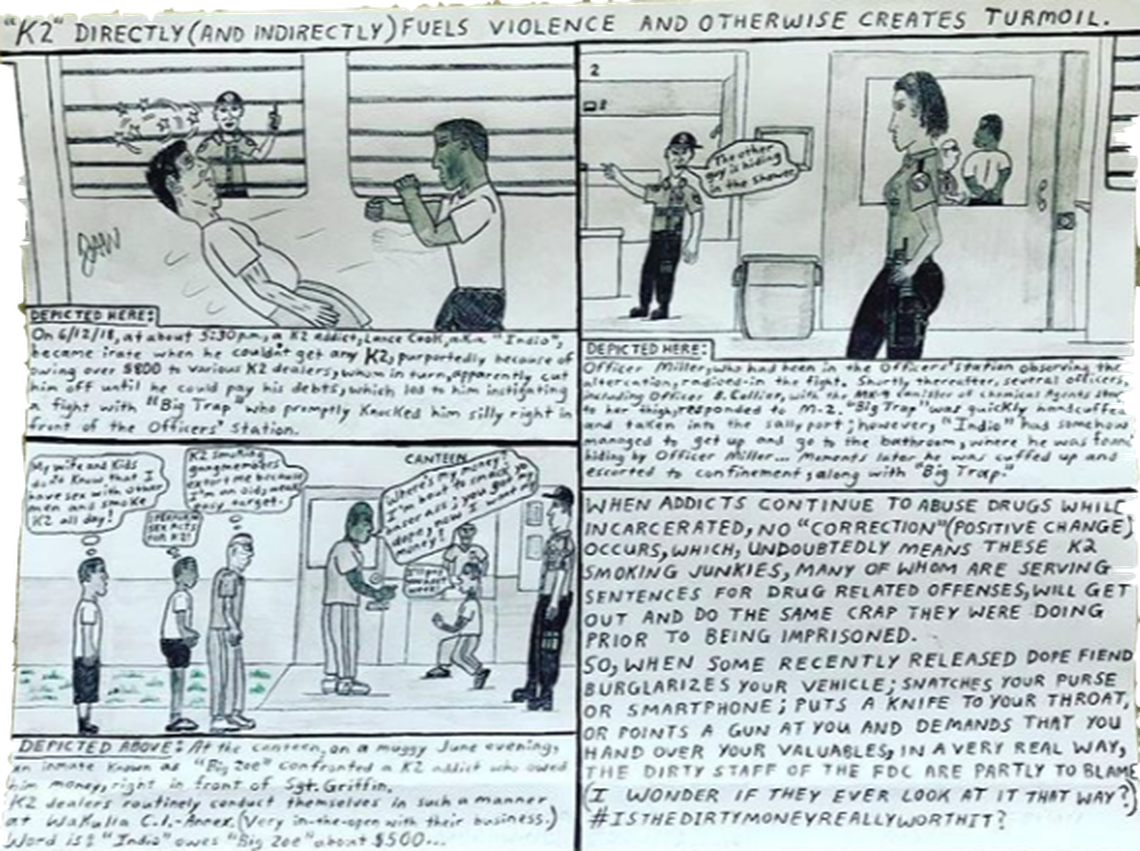 "K2" DIRECTLY (AND INDIRECTLY) FUELS VIOLENCE AND OTHERWISE CREATES TURMOIL.
JAW
DEPICTED HERE:
On 6/12/18, at about 5:30 pm, a K2 addict, Lance Cook, a.k.a "Indio",
became irate when he couldn't get any K2, purportedly because of
owing over $800 to various K2 dealers, whom in turn, apparently cut
him off until he could pay his debts, which led to him instigating
a fight with "Big Trap" who promptly knocked him silly right in
front of the Officers' Station.
2
The other
guy is hiding
in the shower
DEPICTED HERE:
Officer Miller, who had been in the Officers' station observing the
altercation, radioed-in the fight. Shortly thereafter, several officers,
including Officer B. Collier, with the MK-9 canister of chemical Agents
to her thigh, responded to M-2. "Big Trap" was quickly handcuffed
and taken into the sallyport; however, "Indio" had somehow
managed to get up and go to the bathroom, where he was found
hiding by Officer Miller... Moments later he was cuffed up and
escorted to confinement, along with "Big Trap."
My wife and Kids
don't Know that I
have sex with other
men and smoke
K2 all day!
I PERFORM
SEX ACTS
FOR K2!
K2 smoking
gangmembers
extort me because
I'm an old, weak
easy target.
CANTEEN
Where's my money?
I'm 'bout to smack yo
ass; you got my
dope, now I want my
money?
DEPICTED ABOVE: At the canteen, on a muggy June evening,
an inmate known as "Big Zoe" confronted a K2 addict who owed
him money, right in front of Sgt. Griffin.
K2 dealers routinely conduct themselves in such a manner
at Wakulla C.I.-Annex. (Very in-the-open with their business.)
Word is: "Indio" owes "Big Zoe" about $500...
WHEN ADDICTS CONTINUE TO ABUSE DRUGS WHILE
INCARCERATED, NO "CORRECTION" (POSITIVE CHANGE)
OCCURS, WHICH, UNDOUBTEDLY MEANS THESE K2
SMOKING JUNKIES, MANY OF WHOM ARE SERVING
SENTENCES FOR DRUG RELATED OFFENSES, WILL GET
OUT AND DO THE SAME CRAP THEY WERE DOING
PRIOR TO BEING IMPRISONED.
SO, WHEN SOME RECENTLY RELEASED DOPE FIEND
BURGLARIZES YOUR VEHICLE; SNATCHES YOUR PURSE
OR SMARTPHONE; PUTS A KNIFE TO YOUR THROAT,
OR POINTS A GUN AT YOU AND DEMANDS THAT YOU
HAND OVER YOUR VALUABLES, IN A VERY REAL WAY,
THE DIRTY STAFF OF THE FDC ARE PARTLY TO BLAME
(I WONDER IF THEY EVER LOOK AT IT THAT WAY?)
#ISTHEDIRTYMONEYREALLYWORTHIT?